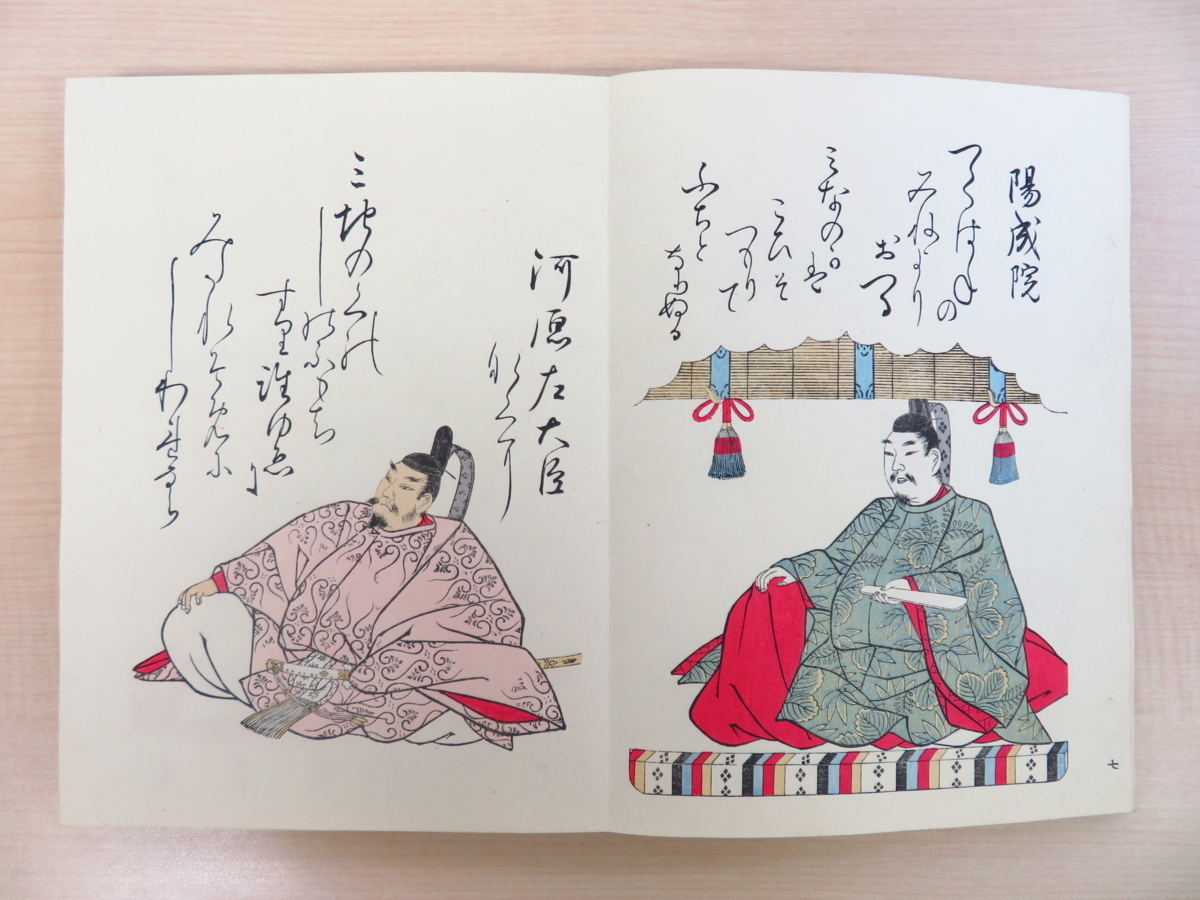 陽成院
つくはねの
みねより
おつる
みなの川
こひそ
つもりて
ふちと
なりぬる
七
河原左大臣
三地のくの
しのふもち
すり誰ゆゑに
みたれそめに
しわれならなくに